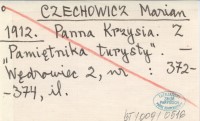 CZECHOWICZ Marian
1912. Panna Krzysia. Z
"Pamiętnika turysty". —
Wędrowiec 2, nr : 372-
-374, il.